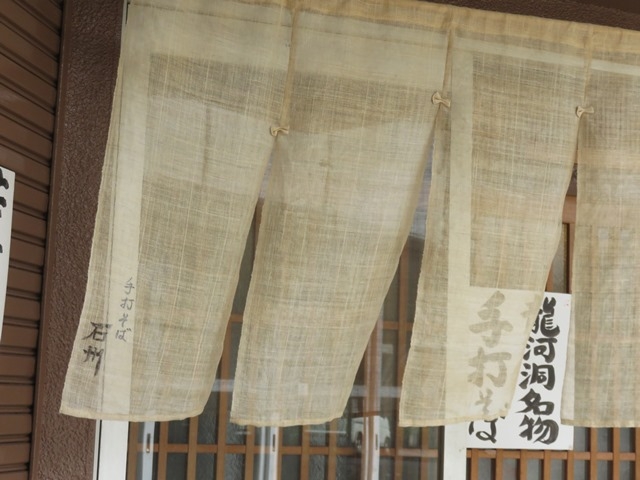 龍河洞名物
手打そば
手打そば
石州